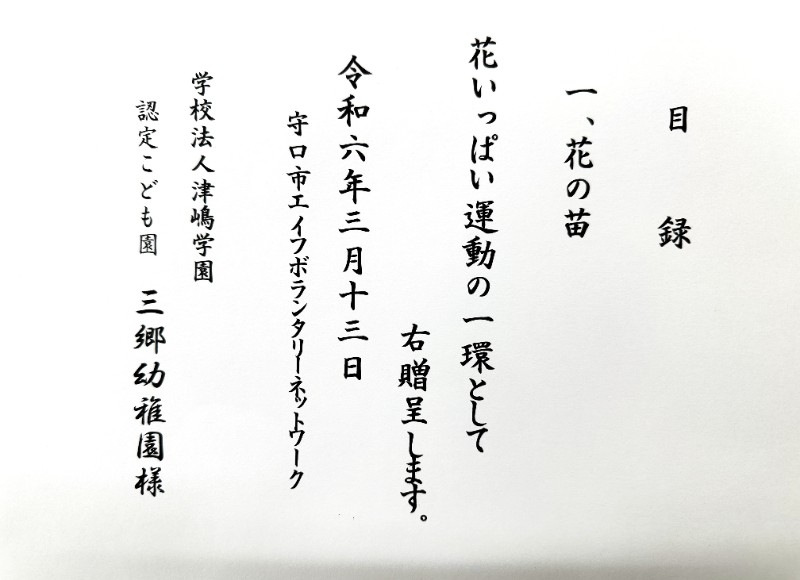 目録
一、花の苗
花いっぱい運動の一環として
右贈呈します。
令和六年三月十三日
守口市エイフボランタリーネットワーク
学校法人津嶋学園
認定こども園 三郷幼稚園様